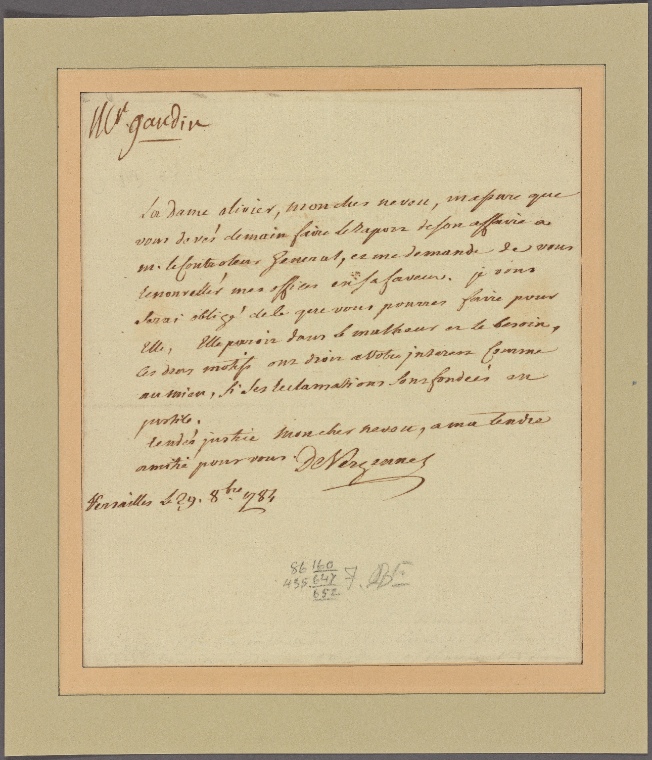 Mr. gaudin
La Dame olivier, mon cher neveu, m'assure que
vous devés demain faire le Raport de son affaire a
m. le Controleur General, et me demande de vous
renouveller mes offices en sa faveur. je vous
serai obligé de ce que vous pourres faire pour
Elle, Elle paroit dans le malheur et le besoin,
Ces deux motifs ont droit a votre interest Comme
au mien, Si Ses reclamations Sont fondées en
justice.
Rendés justice Mon cher neveu, a ma tendre
amitié pour vous. De Vergennes
Versailles Le 29. 8bre 1784
86 160
435 647 7.
652